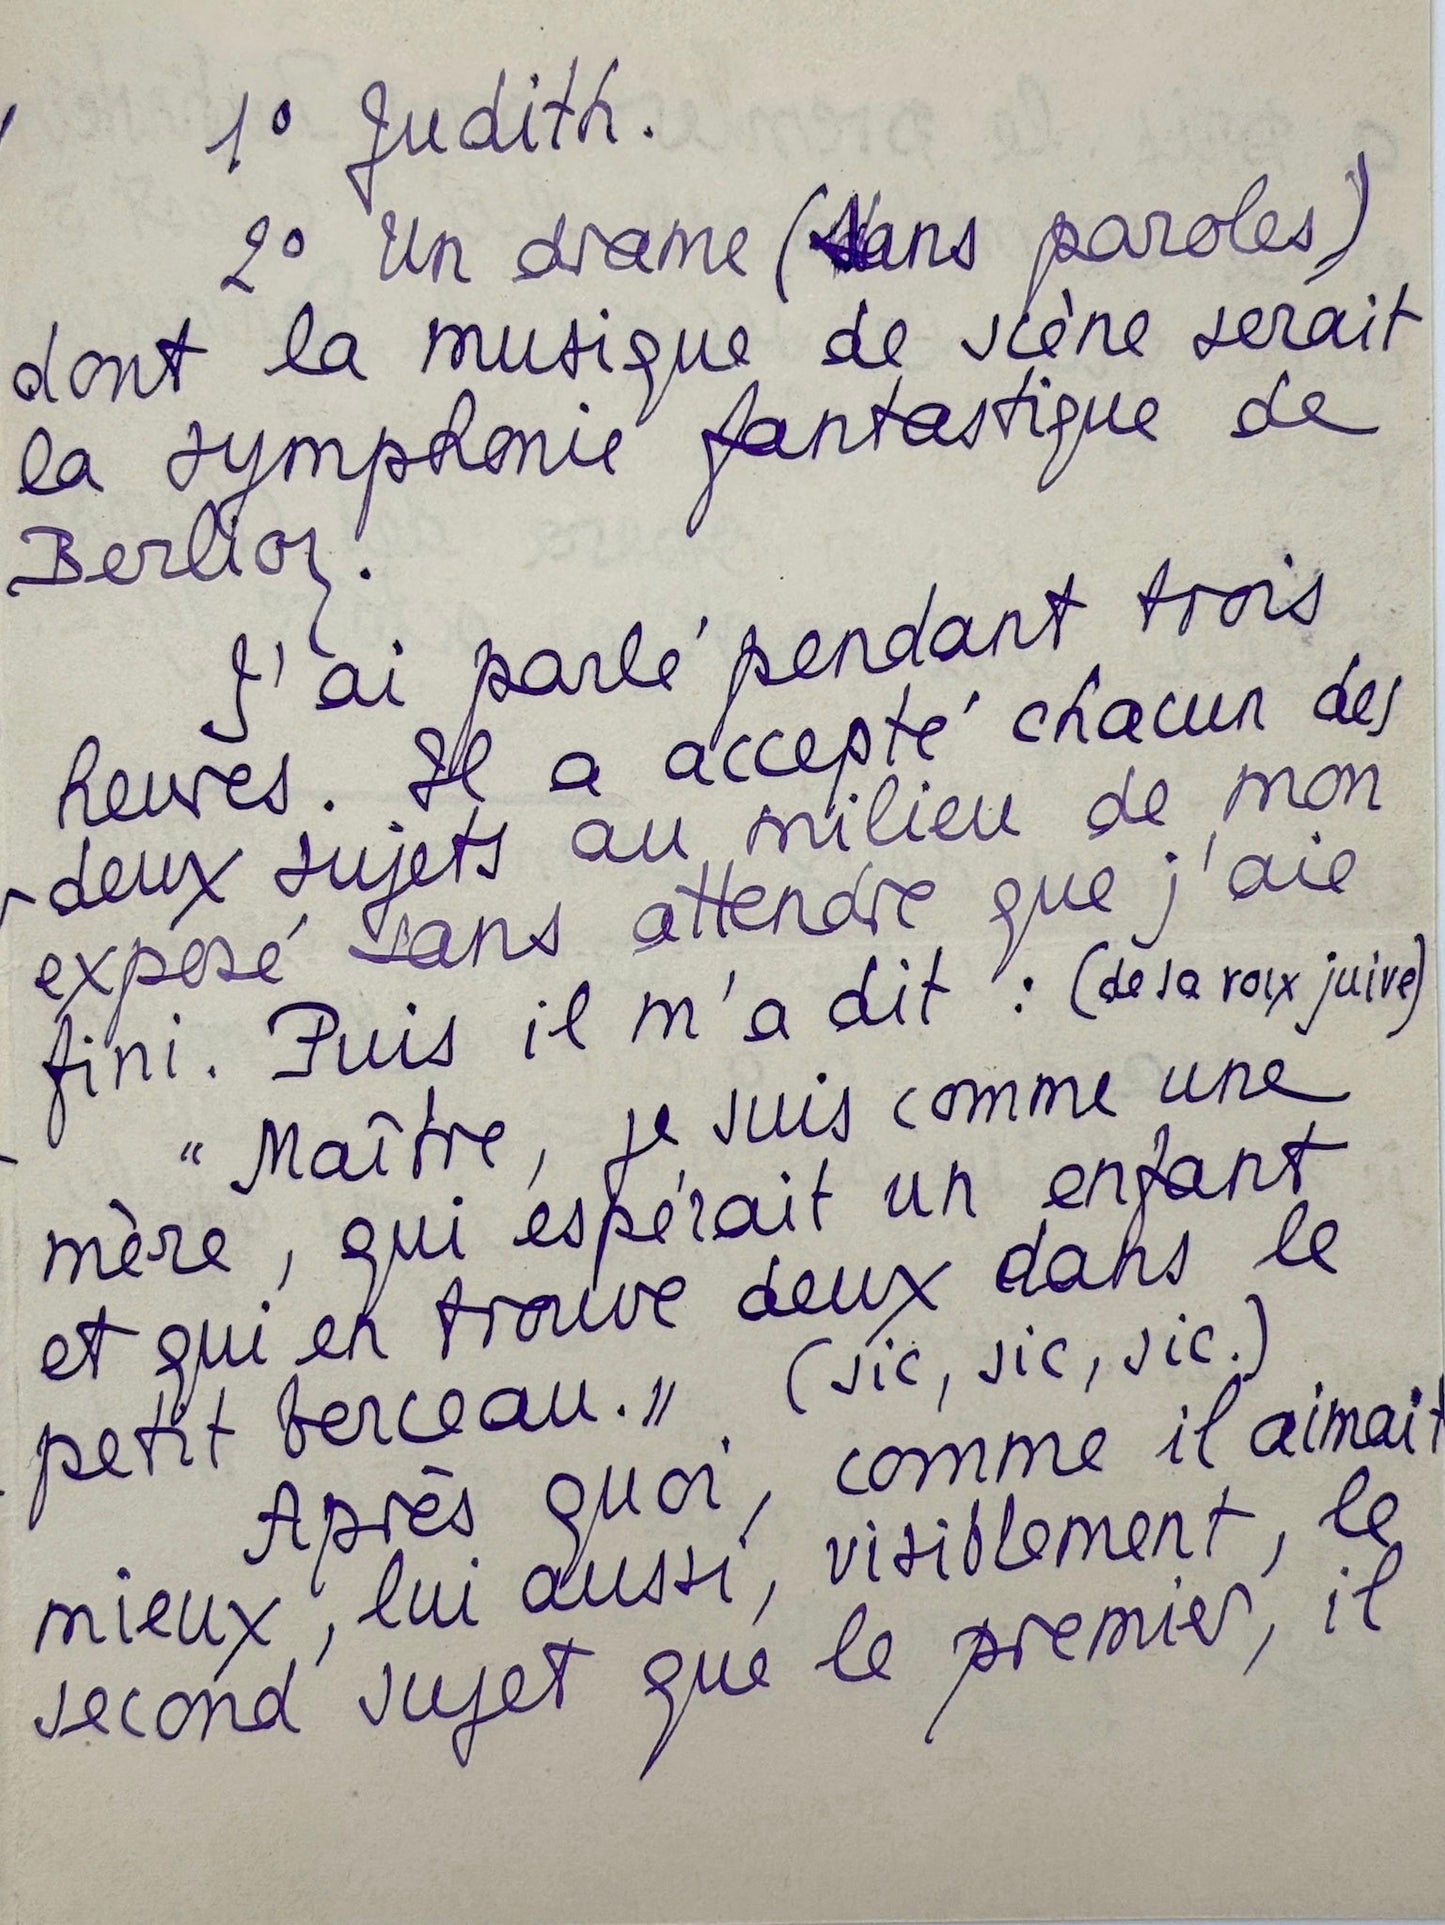 1° Judith.
2° Un drame (sans paroles)
dont la musique de scène serait
la symphonie fantastique de
Berlioz.
J'ai parlé pendant trois
heures. Il a accepté chacun des
deux sujets au milieu de mon
exposé sans attendre que j'aie
fini. Puis il m'a dit : (de sa voix juive)
" Maître, je suis comme une
mère, qui espérait un enfant
et qui en trouve deux dans le
petit berceau." (sic, sic, sic.)
Après quoi, comme il aimait
mieux, lui aussi, visiblement, le
second sujet que le premier, il